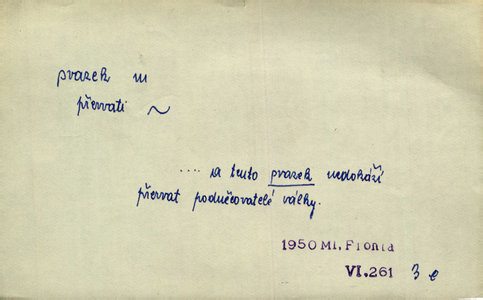 pvazek m
přervati ~
.... a tento pvazek nedokáží
přervat podněcovatelé války.
1950 Ml. Fronta
VI.261 3 e